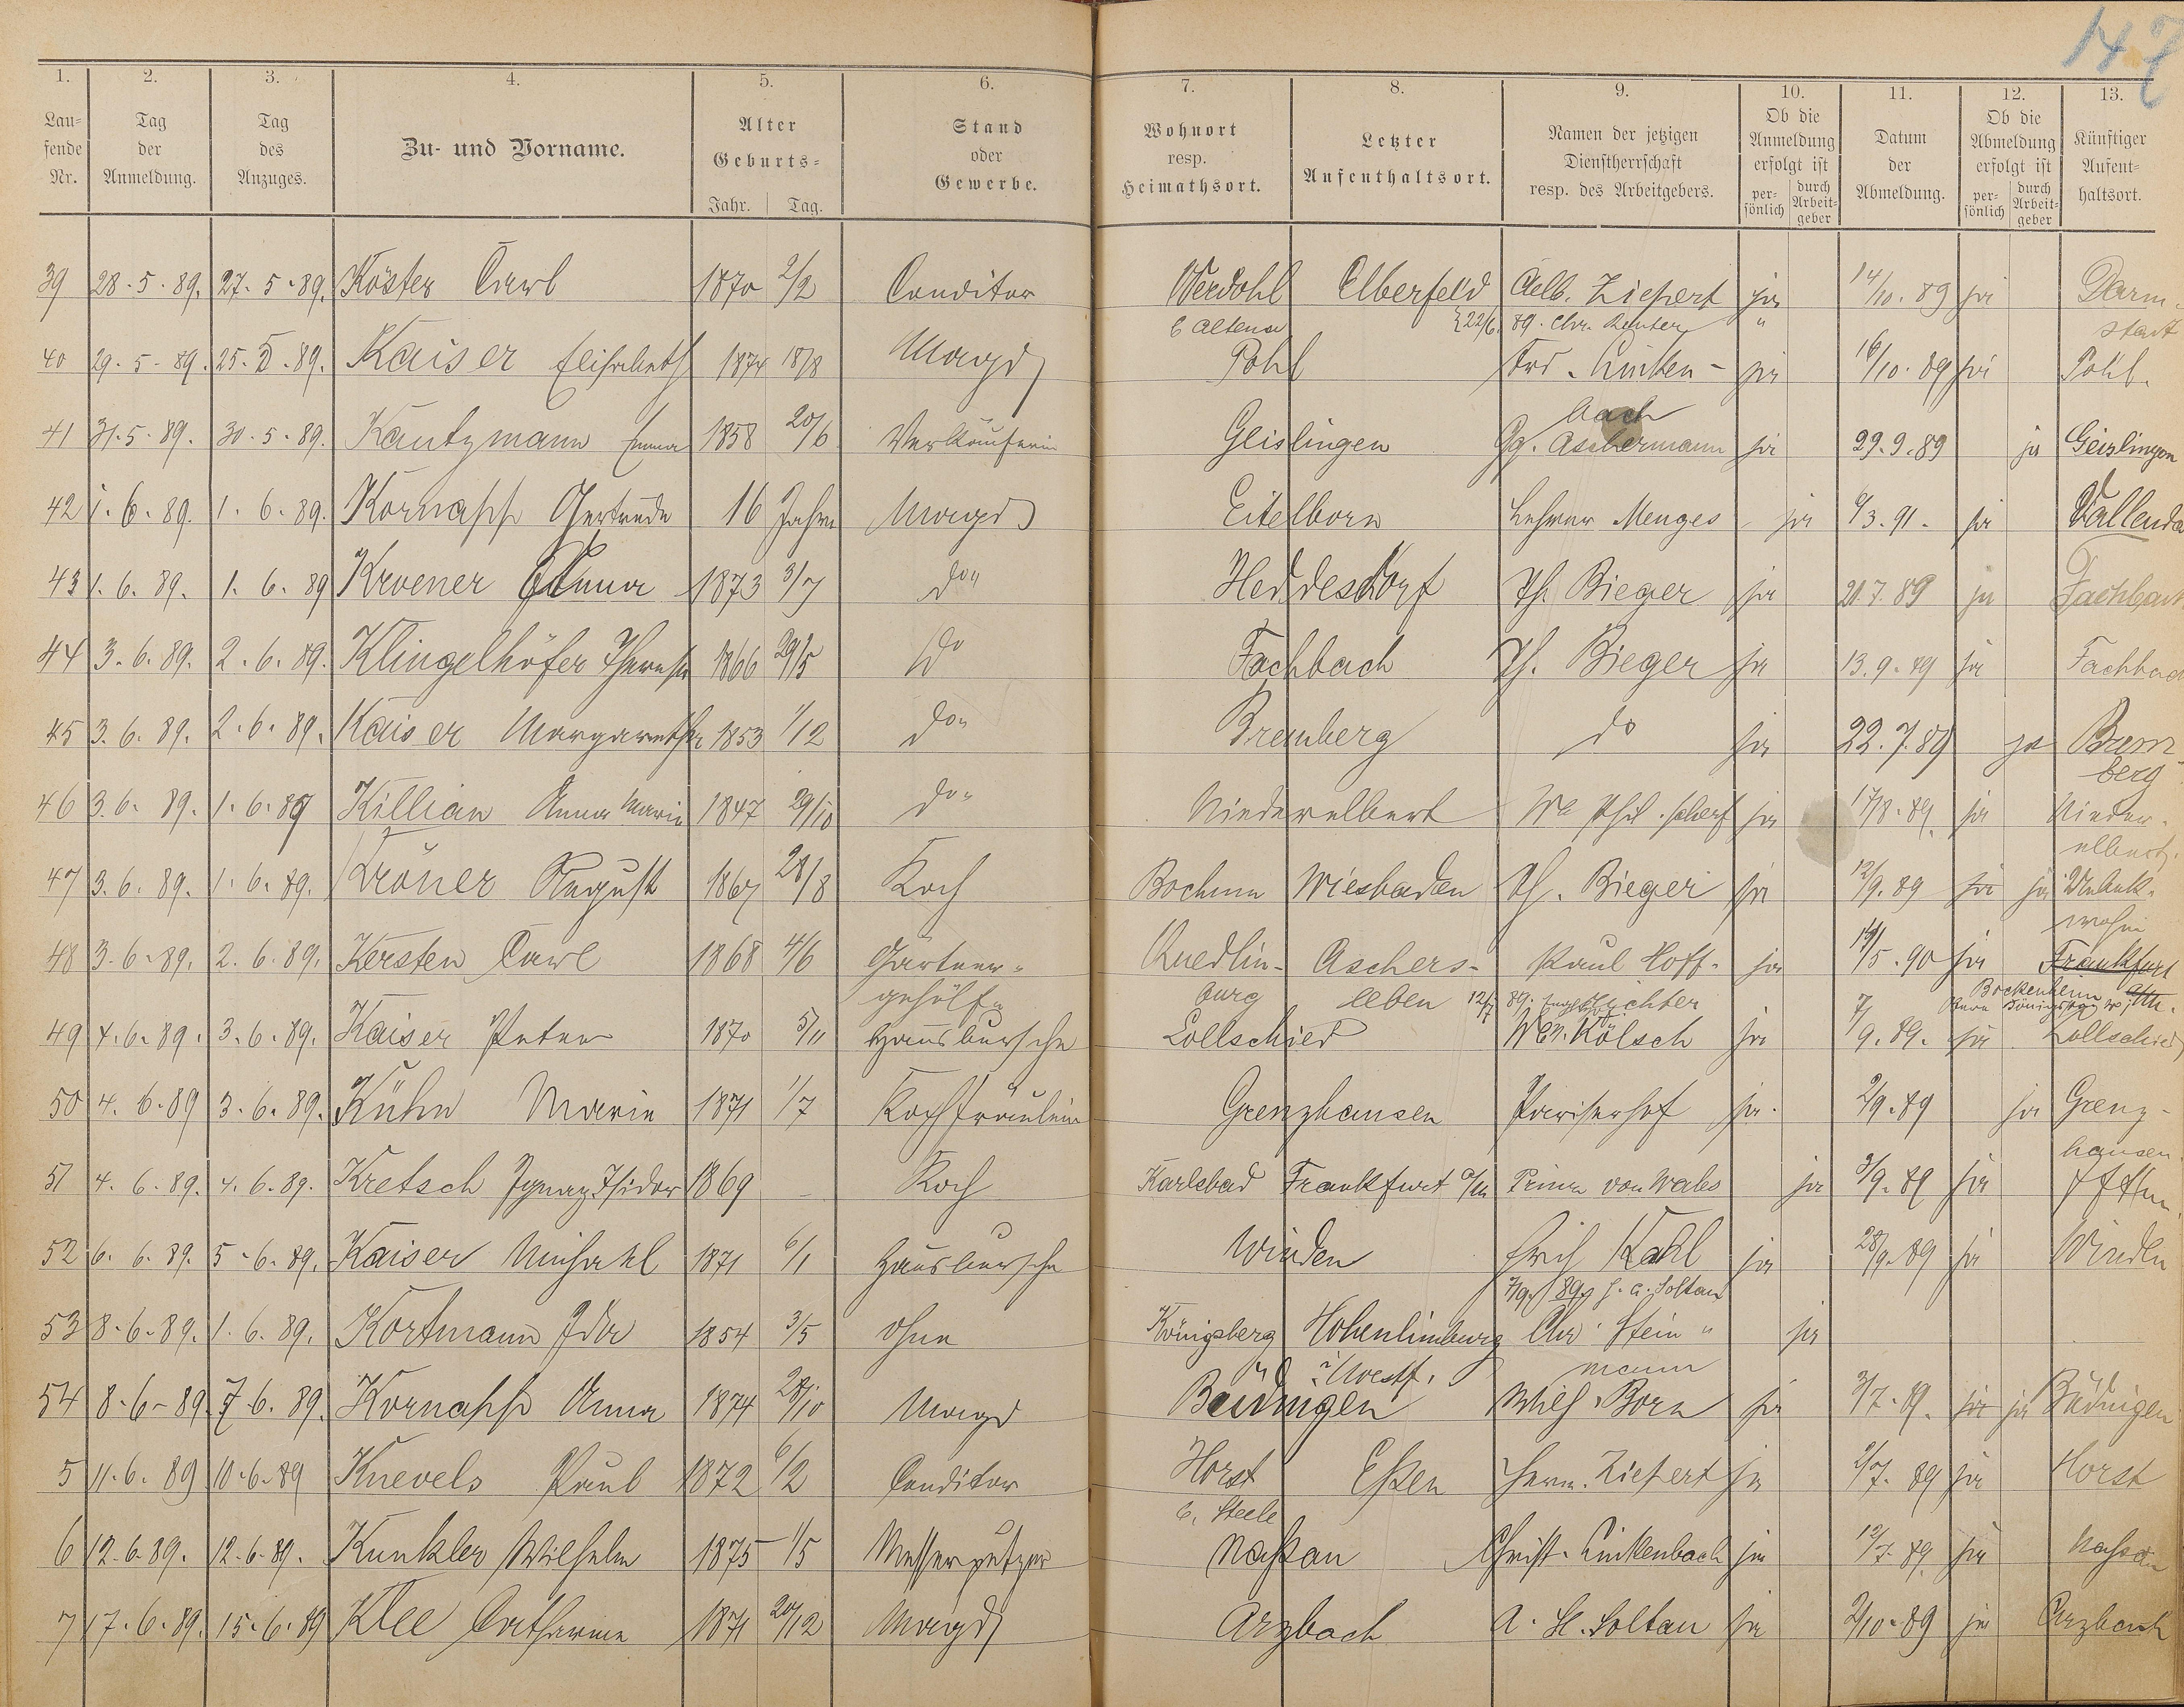 147
1. 2. 3. 4. 5. 6. 7. 8. 9. 10. 11. 12. 13.
Lau=
fende
Nr.
Tag
der
Anmeldung.
Tag
des
Anzuges.
Zu- und Vorname.
Alter
Geburts=
Jahr. Tag.
Stand
oder
Gewerbe.
Wohnort
resp.
Heimathsort.
Letzter
Aufenthaltsort.
Namen der jetzigen
Dienstherrschaft
resp. des Arbeitgebers.
Ob die
Anmeldung
erfolgt ist
per-
sönlich
durch
Arbeit=
geber
Datum
der
Abmeldung.
Ob die
Abmeldung
erfolgt ist
per-
sönlich
durch
Arbeit=
geber
Künftiger
Aufent=
haltsort.
39 28.5.89. 27.5.89. Köster Carl 1870 2/2 Conditor Werdohl Elberfeld Aelb. Ziepert ja 14/10.89 ja Darm-
b Altena 22/6. 89. Chr. Reuter " stadt
40 29.5.89. 25.5.89. Kaiser Elisabeth 1874 18/8 Magd Pohl Frd. Linken- ja 16/10.89 ja Pohl.
bach
41 31.5.89. 30.5.89. Kautzmann Emma 1858 20/6 Verkäuferin Geislingen Gg. Aschermann ja 29.9.89 ja Geislingen
42 1.6.89. 1.6.89. Kornapp Gertrude 16 Jahre Magd Eitelborn Lehrer Menges ja 6/3.91. ja Vallenda
43 1.6.89. 1.6.89 Kroener Anna 1873 3/7 do Heddesdorf Ph. Bieger ja 21.7.89 ja Fachbach
44 3.6.89. 2.6.89. Klingelhöfer Therese 1866 29/5 do Fachbach Ph. Bieger ja 13.9.89 ja Fachbach
45 3.6.89. 2.6.89. Kaiser Margarethe 1853 1/12 do Bremberg do ja 22.7.89 ja Brem-
berg
46 3.6.89. 1.6.89 Killian Anna Maria 1847 29/10 do Niederelbert We Phil. Scherf ja 17/8.89. ja Nieder-
elbert.
47 3.6.89. 1.6.89. Kröner August 1867 28/8 Koch Bochum Wiesbaden Ph. Bieger ja 12/9.89 ja ja Unbek.
wohin
48 3.6.89. 2.6.89. Kersten Carl 1868 4/6 Gärtner- Quedlin- Aschers- Paul Hoff- ja 14/5.90 ja Frankfurt
gehölfe burg leben 12/7 89. Richter Bockenheim a/M.
49 4.6.89. 3.6.89. Kaiser Peter 1870 5/11 Hausbursche Lollschied Wen. Kölsch ja 7/9.89. ja Lollschied
50 4.6.89 3.6.89. Kühn Marie 1871 1/7 Kochfräulein Grenzhausen Pariserhof ja. 2/9.89 ja Grenz-
hausen.
51 4.6.89. 4.6.89. Kretsch Ignaz Isidor 1869 – Koch Karlsbad Frankfurt a/M Prince von Wales ja 3/9.89 ja Ffthm.
52 6.6.89. 5.6.89. Kaiser Michael 1871 6/1 Hausbursche Winden Emil Kahl ja 28/9.89 ja Winden
7/9. 89 H. A. Soltau
53 8.6.89. 1.6.89. Kortmann Ida 1854 3/5 ohne Königsberg Hohenlimburg Chr. Stein " ja
i/Westf. mann
54 8.6.89 7.6.89. Kornapp Anna 1874 28/10 Magd Büdingen Wilh. Born ja 3/7.89. ja ja Büdingen
5 11.6.89 10.6.89 Knevels Paul 1872 6/2 Conditor Horst Eßen Herm. Ziepert ja 1/7.89 ja Horst
b. Steele
6 12.6.89. 12.6.89. Kunkler Wilhelm 1875 1/5 Messerputzer Naßau Christ. Linkenbach ja 12/7.89. ja Naßau
7 17.6.89. 15.6.89 Klee Catharine 1871 20/12 Magd Arzbach A. H. Soltau ja 2/10.89 ja Arzbach